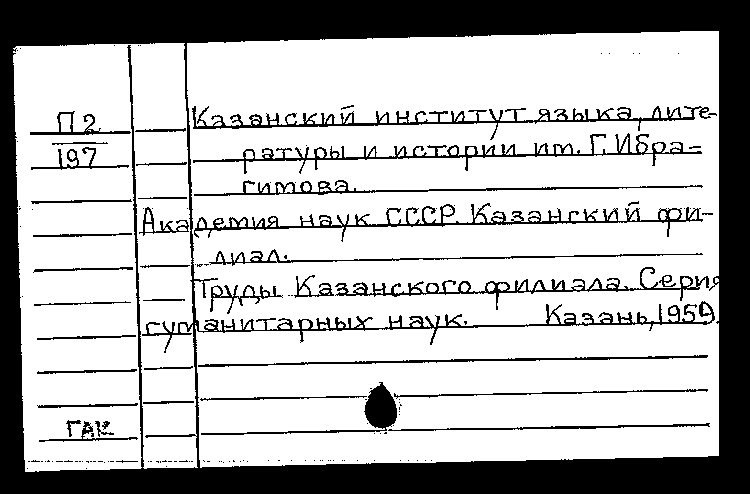 П2
197
Казанский институт языка, лите-
ратуры и истории им. Г. Ибра-
гимова.
Академия наук СССР. Казанский фи-
лиал.
Труды Казанского филиала. Серия
гуманитарных наук. Казань, 1959.
ГАК